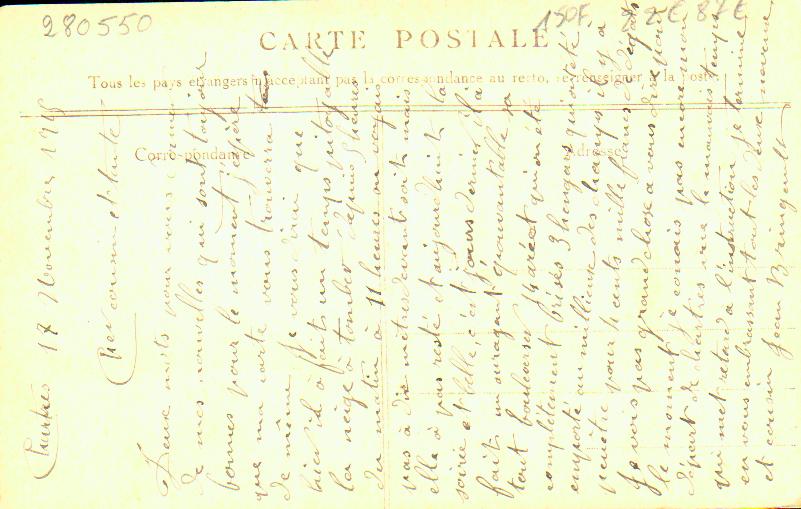 280550
150F
22€ 87€
CARTE POSTALE
Tous les pays étrangers n'acceptant pas la correspondance au recto, se renseigner à la Poste.
Correspondance
Adresse
Chartres 17 Novembre
Cher cousin et tante
Deux mots pour vous donner
de mes nouvelles qui sont toujour
bonnes pour le moment j'espère
que ma carte vous trouvera tous
de même. Je vous dirai que
hier il à fait un temps pitoyable
la neige à tomber depuis heures
du matin à 11 heures on voyais
pas à dix mètres devant soit mais
elle à pas resté et aujourd'huit la
soirée est belle, c'est jours dernier il à
fait un ouragant épouvantable sa
tout boulverser avions qui on été
complètement brisés 3 hangars qui on été
emporté au millieu des champs il y a
peutêtre pour cents mille francs de dégats
Je vois pas grand chose a vous dire pour
le moment je conais pas encore mon
départ de Chartres vue le mauvais temps
qui met retard à l'instruction je termine
en vous embrassant tout les deux neveux
et cousin Jean Bringault